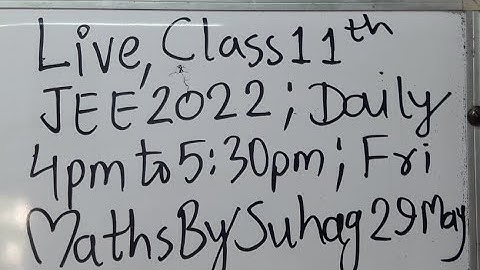 Live, Class 11th
JEE 2022 ; Daily
4pm to 5:30pm ; Fri
Maths By Suhag 29 May